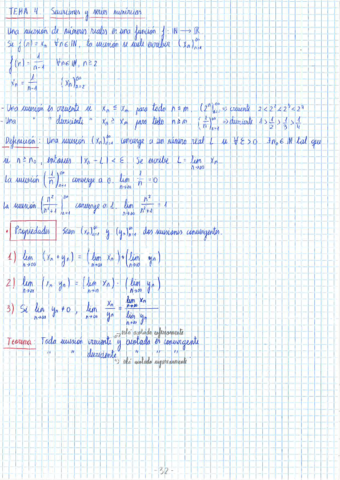 TEMA 4 Sucesiones y series numéricas
Una sucesión de números reales es una función f: ℕ → ℝ
Si f(n) = xₙ ∀n∈ℕ, la sucesión se suele escribir (xₙ)ₙ₌₁^∞
f(n) = 1/(n-1) ∀n∈ℕ, n≥2
xₙ = 1/(n-1) (xₙ)ₙ₌₂^∞
- Una sucesión es creciente si xₙ ≤ xₘ para todo n≤m (2ⁿ)ₙ₌₁^∞ → creciente 2<2²<2³<2⁴
- Una " " decreciente " xₙ ≥ xₘ para todo n≤m (1/n)ₙ₌₁^∞ → decreciente 1>1/2>1/3>1/4
Definición: Una sucesión (xₙ)ₙ₌₁^∞ converge a un número real L si ∀ε>0 ∃n₀∈ℕ tal que
si n≥n₀, entonces |xₙ-L|<ε. Se escribe L = lim n→∞ xₙ
La sucesión (1/n)ₙ₌₁^∞ converge a 0. lim n→∞ 1/n = 0
La sucesión (n²/(n²+1))ₙ₌₁^∞ converge a 1. lim n→∞ n²/(n²+1) = 1
• Propiedades Sean (xₙ)ₙ₌₁^∞ y (yₙ)ₙ₌₁^∞ dos sucesiones convergentes.
1) lim n→∞ (xₙ + yₙ) = (lim n→∞ xₙ) + (lim n→∞ yₙ)
2) lim n→∞ (xₙ yₙ) = (lim n→∞ xₙ) · (lim n→∞ yₙ)
3) Si lim n→∞ yₙ ≠ 0, lim n→∞ xₙ/yₙ = lim n→∞ xₙ / lim n→∞ yₙ
→ solo acotada superiormente
Teorema Toda sucesión creciente y acotada es convergente
" " decreciente " " "
→ solo acotada inferiormente
- 32 -